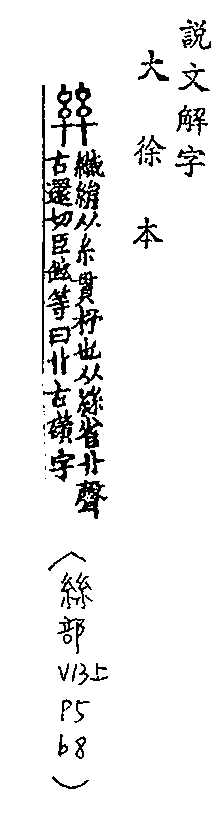 説文解字
大徐本
𢇇
織絹从糸貫杼也从絲省卝聲
古還切臣鉉等曰卝古礦字
(絲部
V13上
P5
b8)